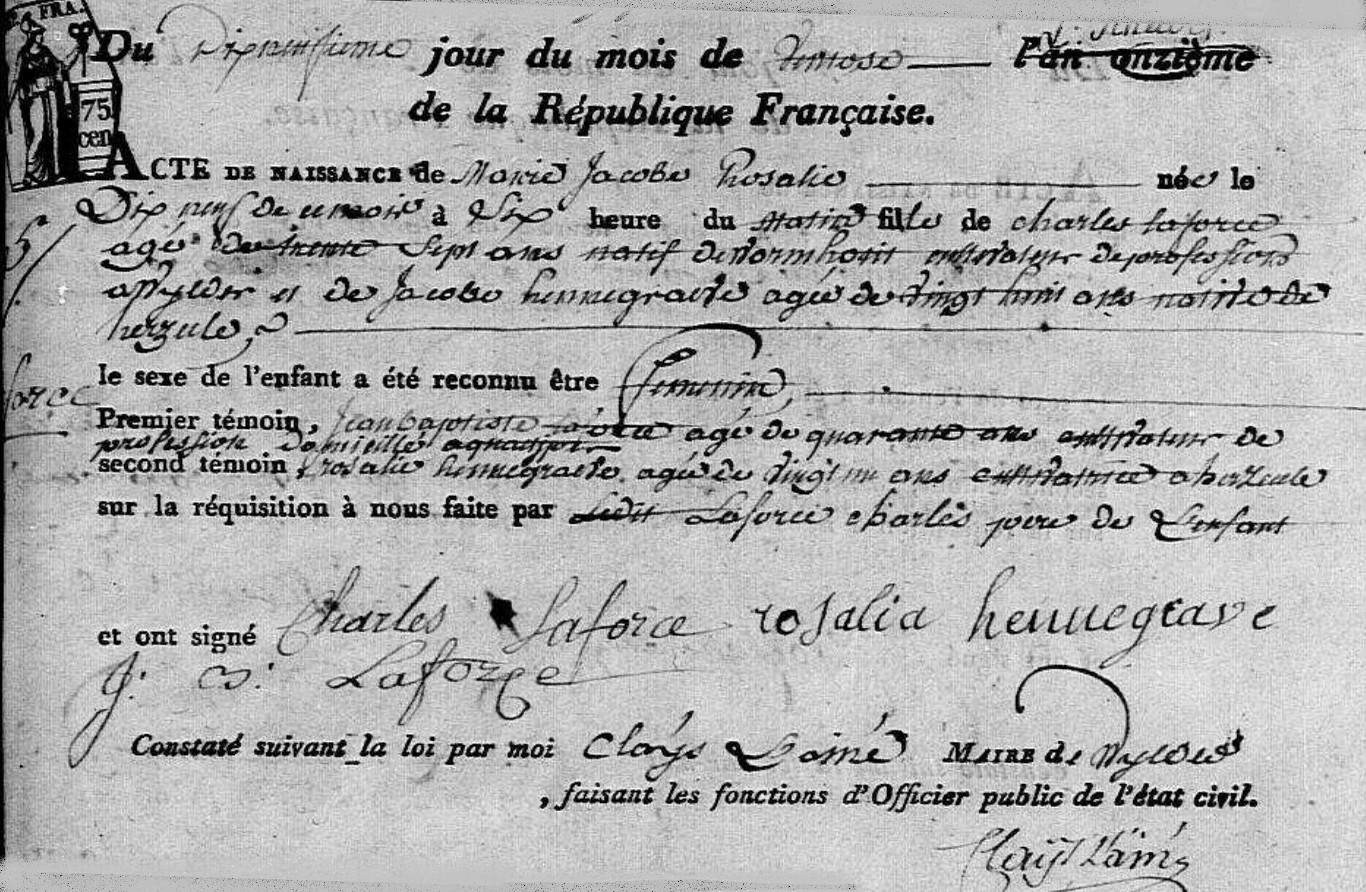 FRA.
75
cen
Du Dixneufieme jour du mois de l'an onzième
de la République Française.
ACTE DE NAISSANCE de Marie Jacobe Rosalie née le
Dix neuf de ce mois à Six heure du Matin fille de charles laforce
agé de trente Sept ans natif de Wormhout cultivateur de profession
a Wylder et de Jacobe hennegraeve agée de vingt huit ans native de
herzeele
le sexe de l'enfant a été reconnu être feminin
Premier témoin, Jean baptiste agé de quarante ans cultivateur de
profession Domicillié
second témoin Rosalie hennegraeve agée de vingt un ans cultivatrice a herzeele
sur la réquisition à nous faite par Ledit Laforce charles pere de L'enfant
et ont signé Charles Laforce rosalia hennegrave
J. B. Laforce
Constaté suivant la loi par moi Claÿs L'ainé MAIRE de Wylder
, faisant les fonctions d'Officier public de l'état civil.
Claÿs L'ainé